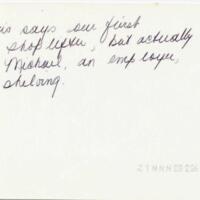 is says our first
shoplifter, but actually
Michael, an employee,
shelving.